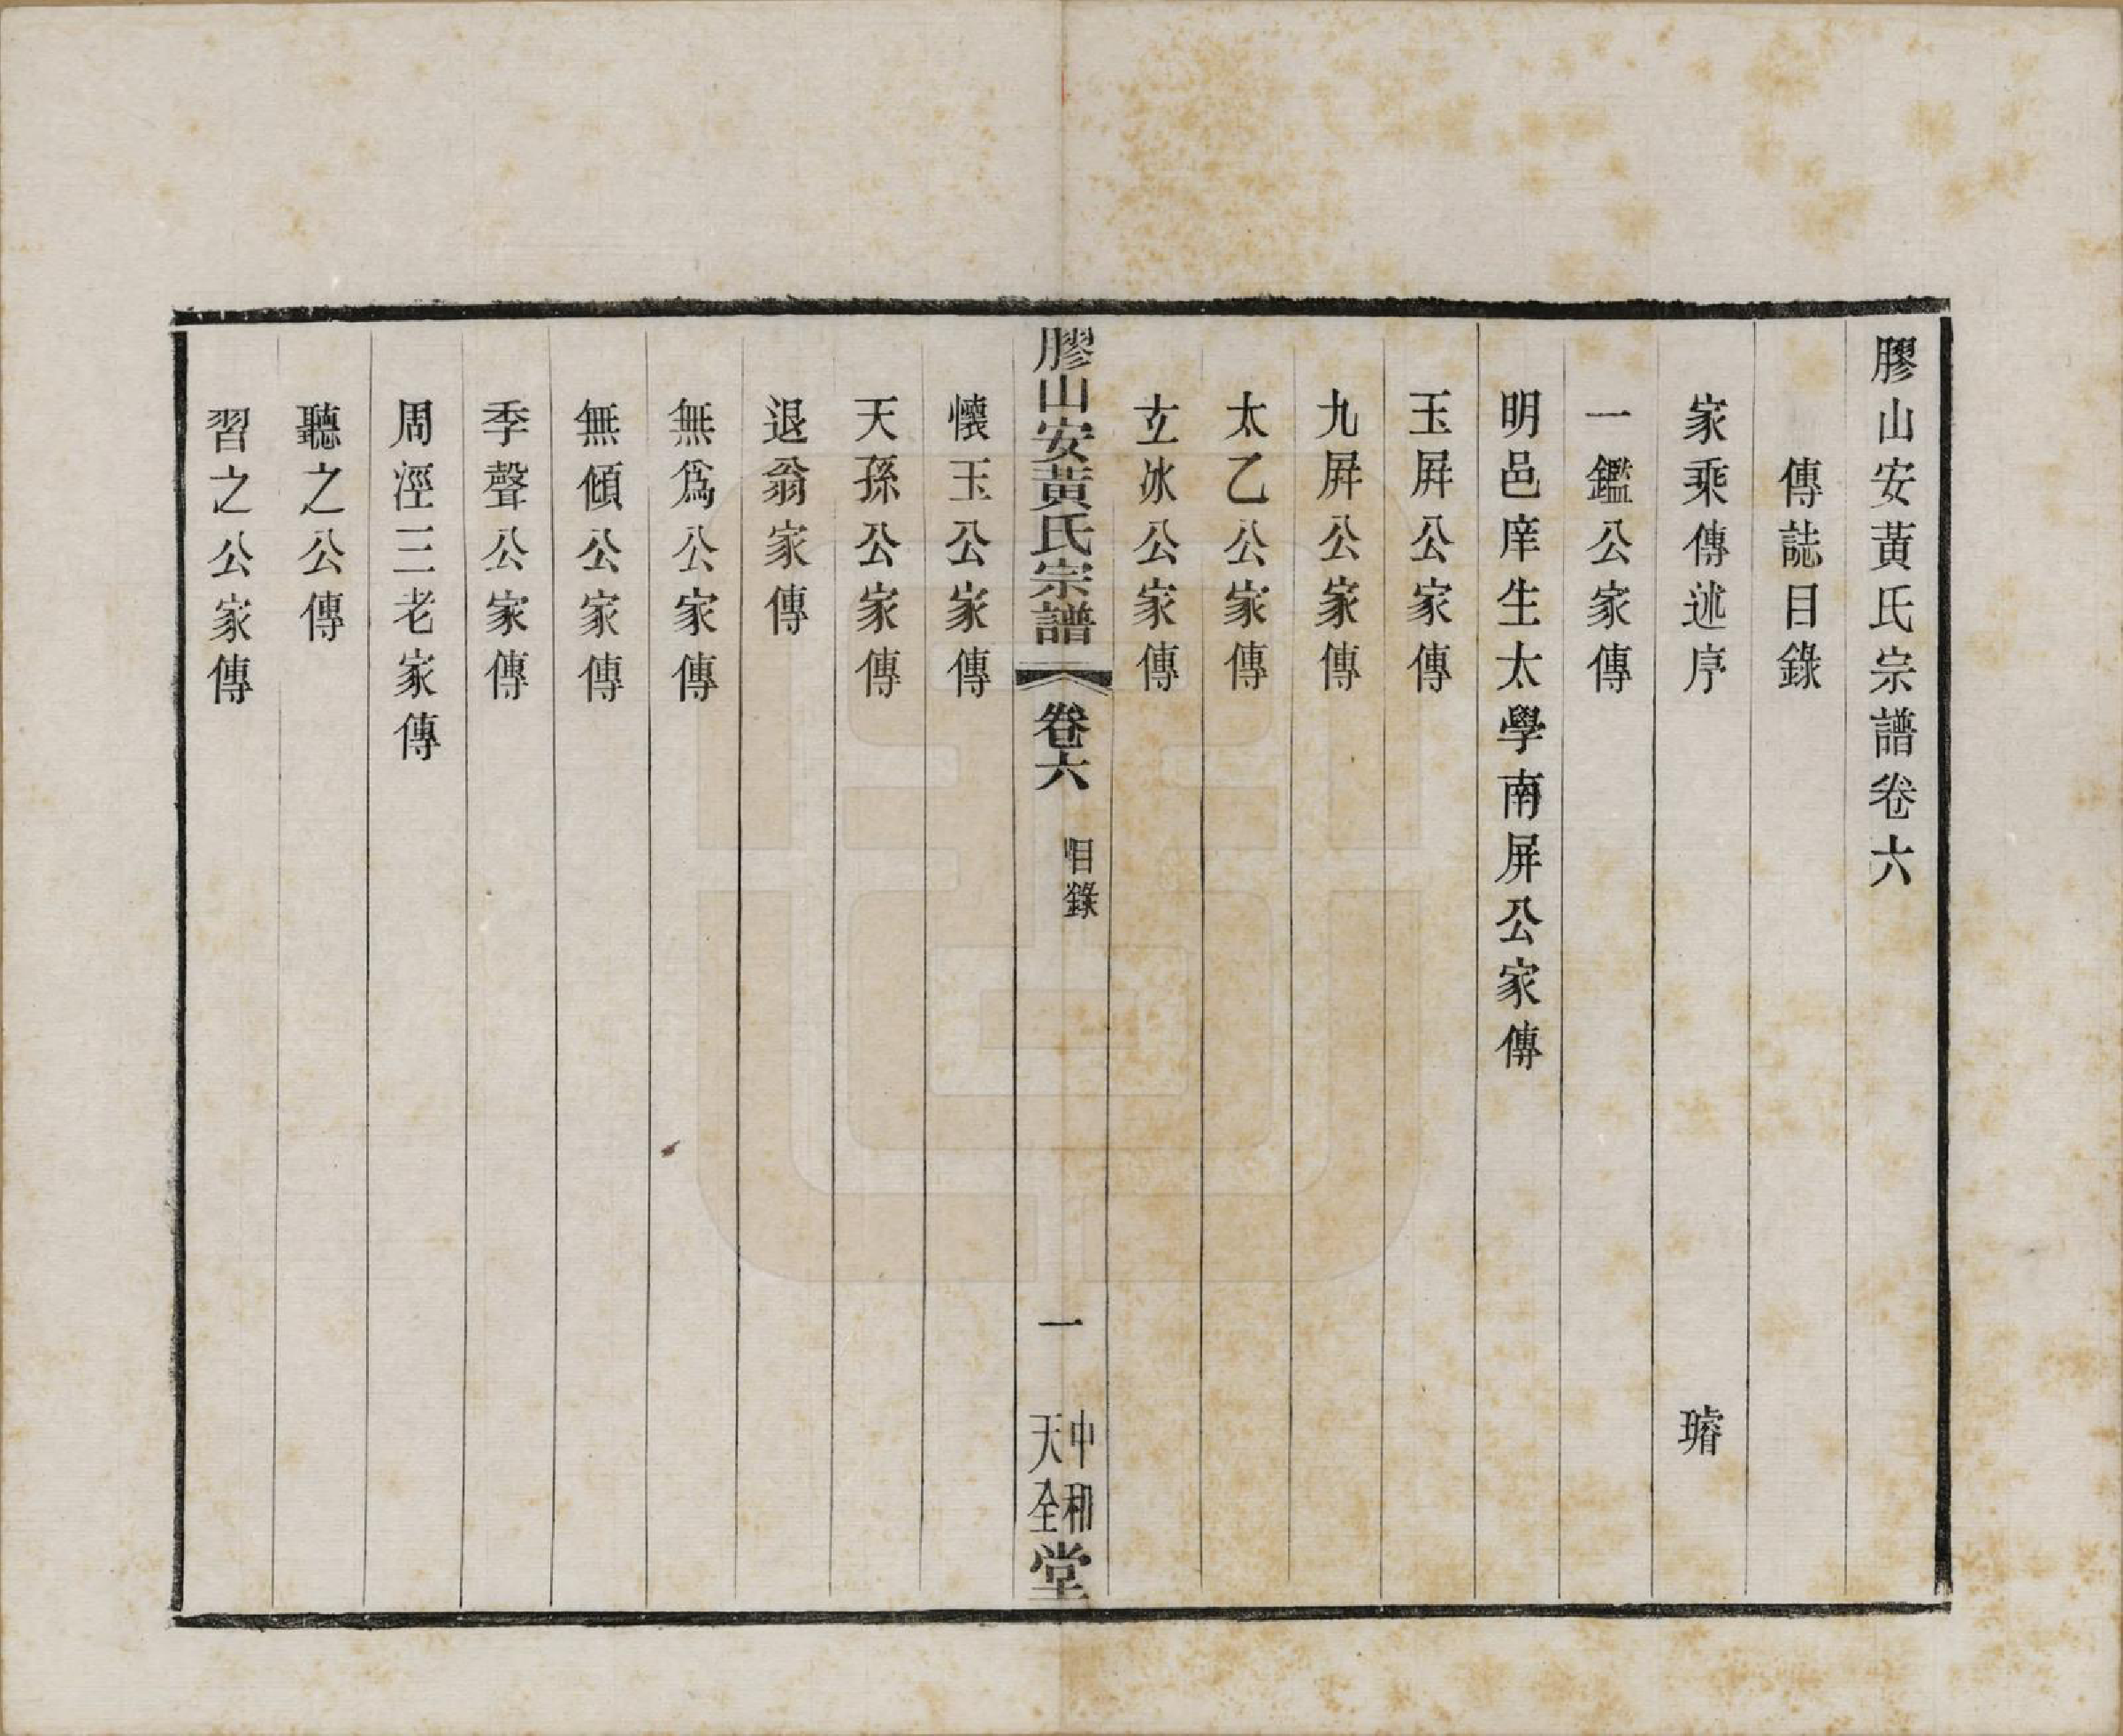 膠山安黃氏宗譜卷六
傳誌目錄
家乘傳述序　璿
一鑑公家傳
明邑庠生太學南屏公家傳
玉屏公家傳
九屏公家傳
太乙公家傳
玄冰公家傳
膠山安黃氏宗譜　卷六　目錄　一　中和天全堂
懷玉公家傳
天孫公家傳
退翁家傳
無爲公家傳
無傾公家傳
季聲公家傳
周涇三老家傳
聽之公傳
習之公家傳